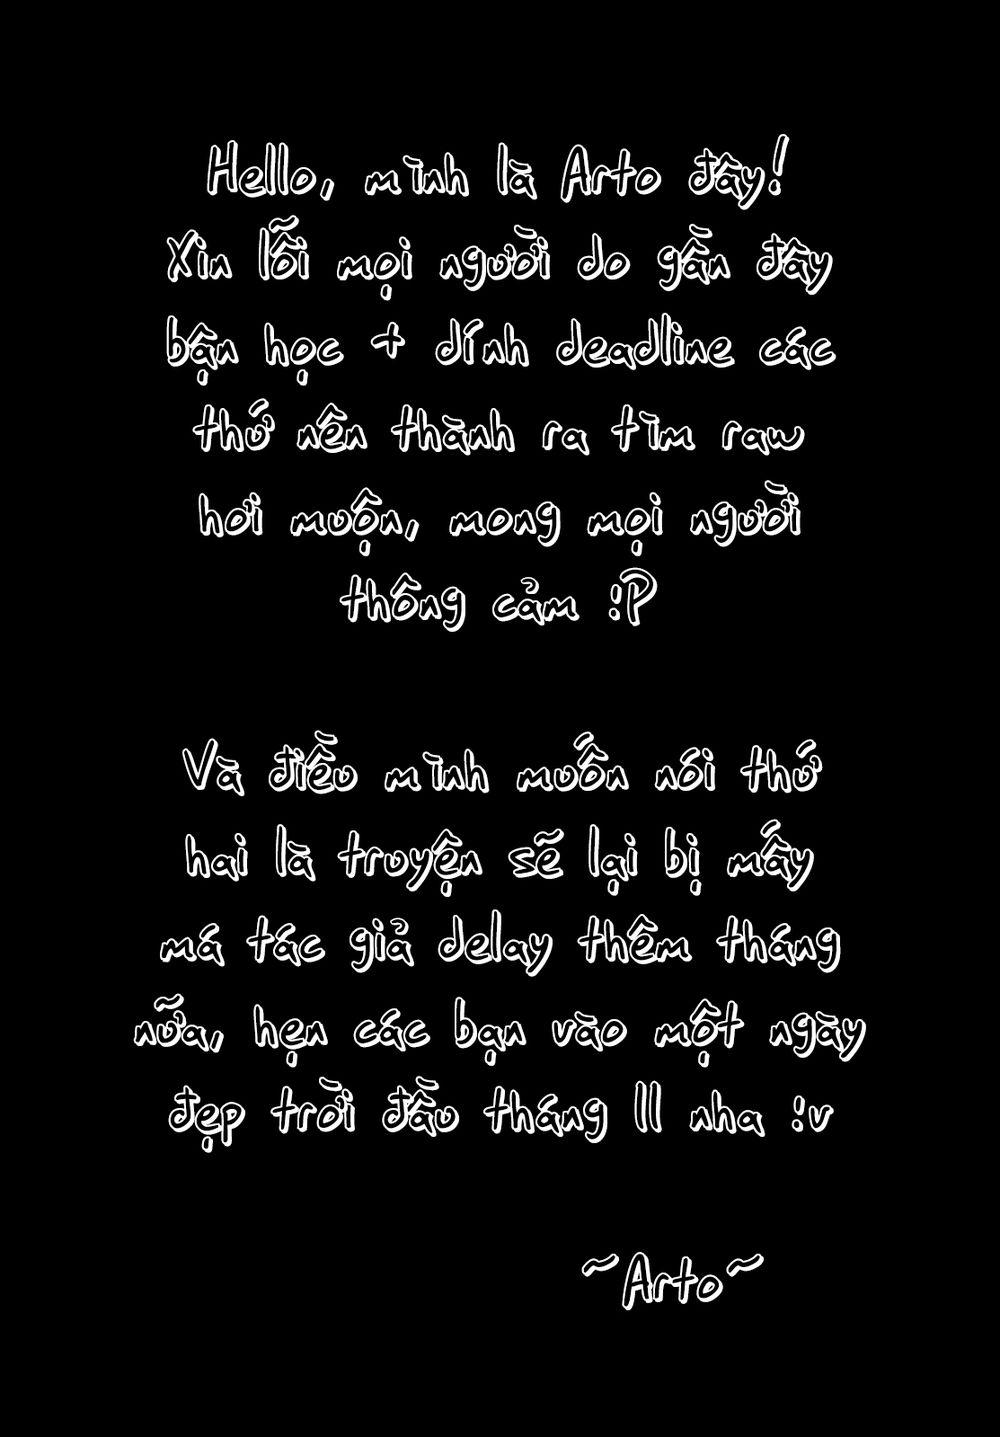 Hello, mình là Arto đây!
Xin lỗi mọi người do gần đây
bận học + dính deadline các
thứ nên thành ra tìm raw
hơi muộn, mong mọi người
thông cảm :P
Và điều mình muốn nói thứ
hai là truyện sẽ lại bị mấy
má tác giả delay thêm tháng
nữa, hẹn các bạn vào một ngày
đẹp trời đầu tháng 11 nha :v
~Arto~